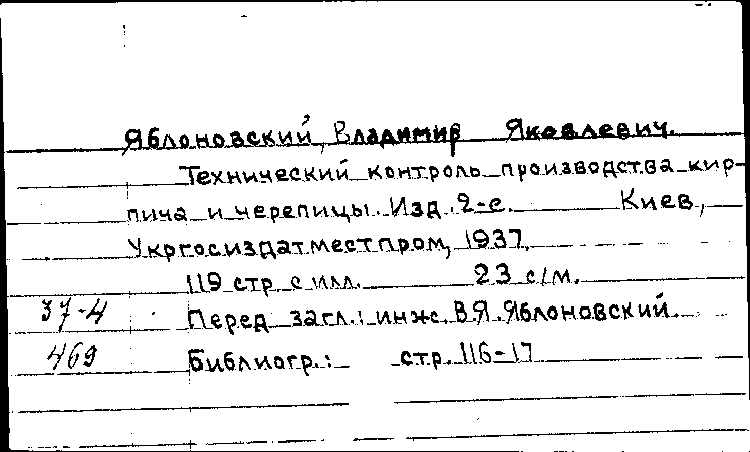 Яблоновский, Владимир Яковлевич.
Технический контроль производства кир-
пича и черепицы. Изд. 2-е. Киев,
Укргосиздатместпром, 1937.
119 стр. с илл. 23 с/м.
37-4 Перед загл.: инж. В.Я. Яблоновский.
469 Библиогр.: стр. 116-17